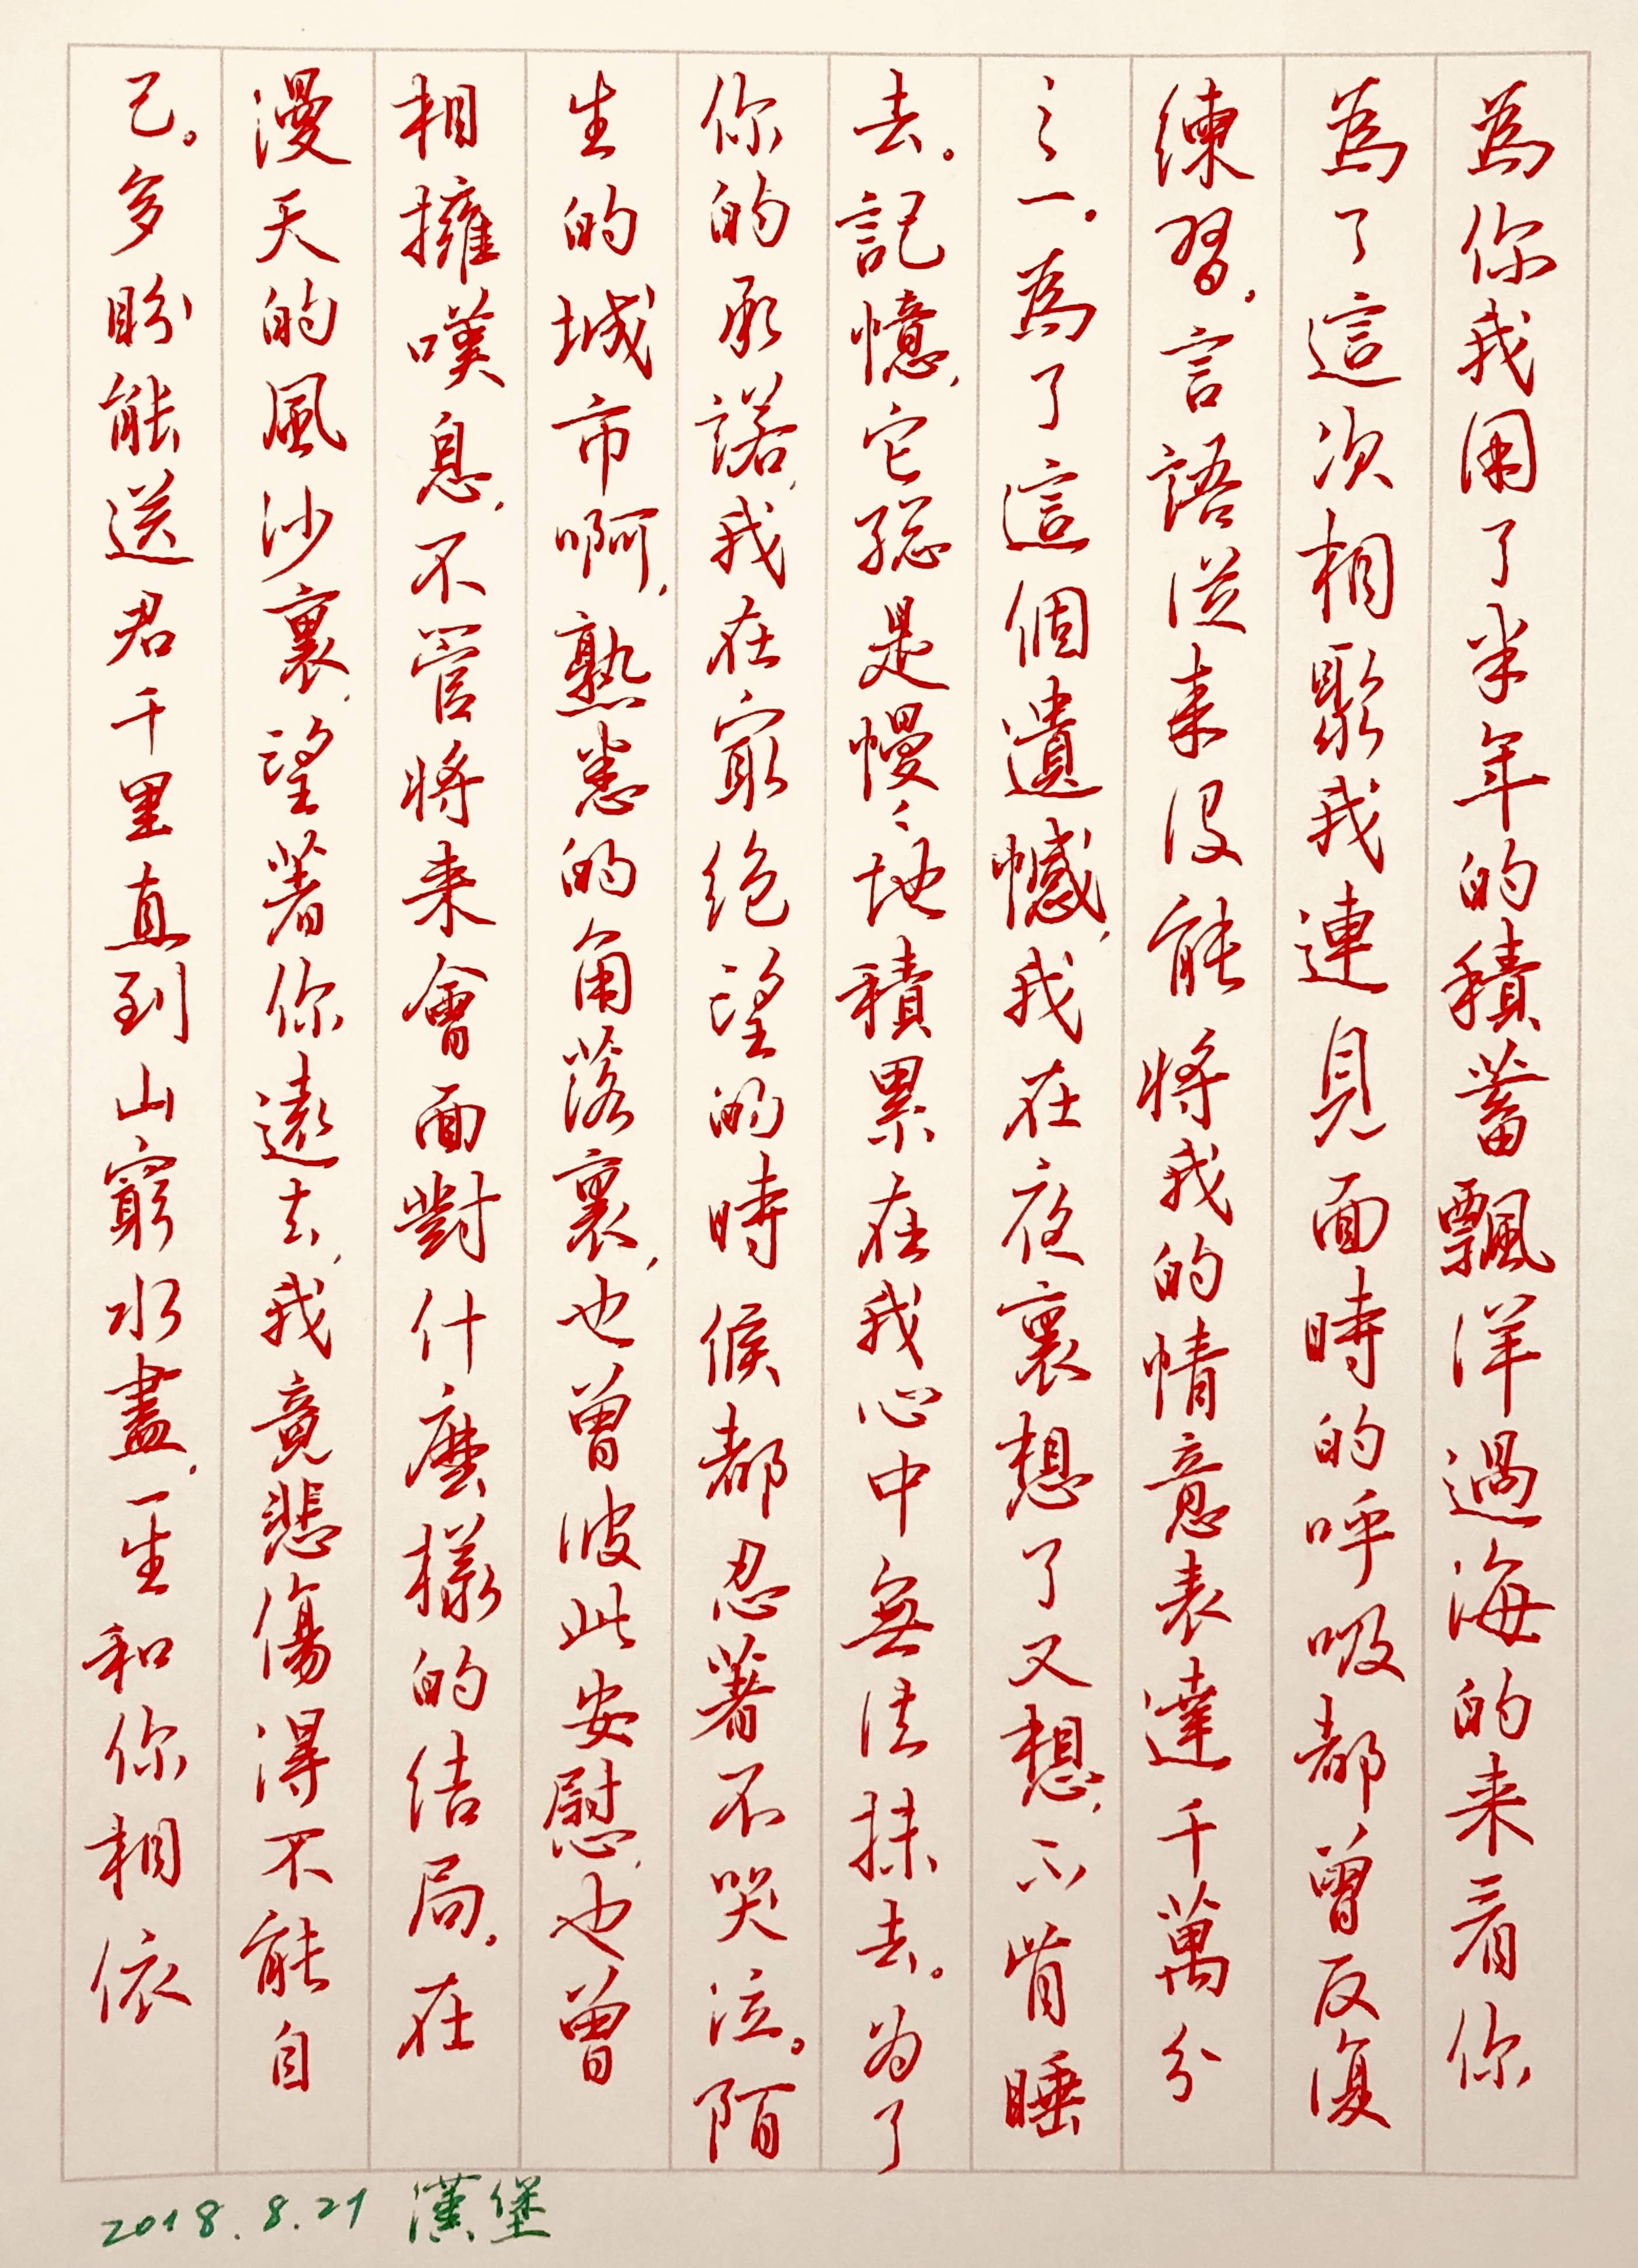 為你我用了半年的積蓄飄洋過海的来看你
為了這次相聚我連見面時的呼吸都曾反復
練習，言語從来沒能將我的情意表達千萬分
之一。為了這個遺憾，我在夜裏想了又想，不肯睡
去。記憶，它総是慢々地積累在我心中無法抹去。为了
你的承諾，我在最绝望的時候都忍著不哭泣。陌
生的城市啊，熟悉的角落裏，也曾彼此安慰，也曾
相擁嘆息，不管將来會面對什麼樣的结局。在
漫天的風沙裏，望著你遠去，我竟悲傷得不能自
已。多盼能送君千里直到山窮水盡，一生和你相依
2018.8.21 漢堡